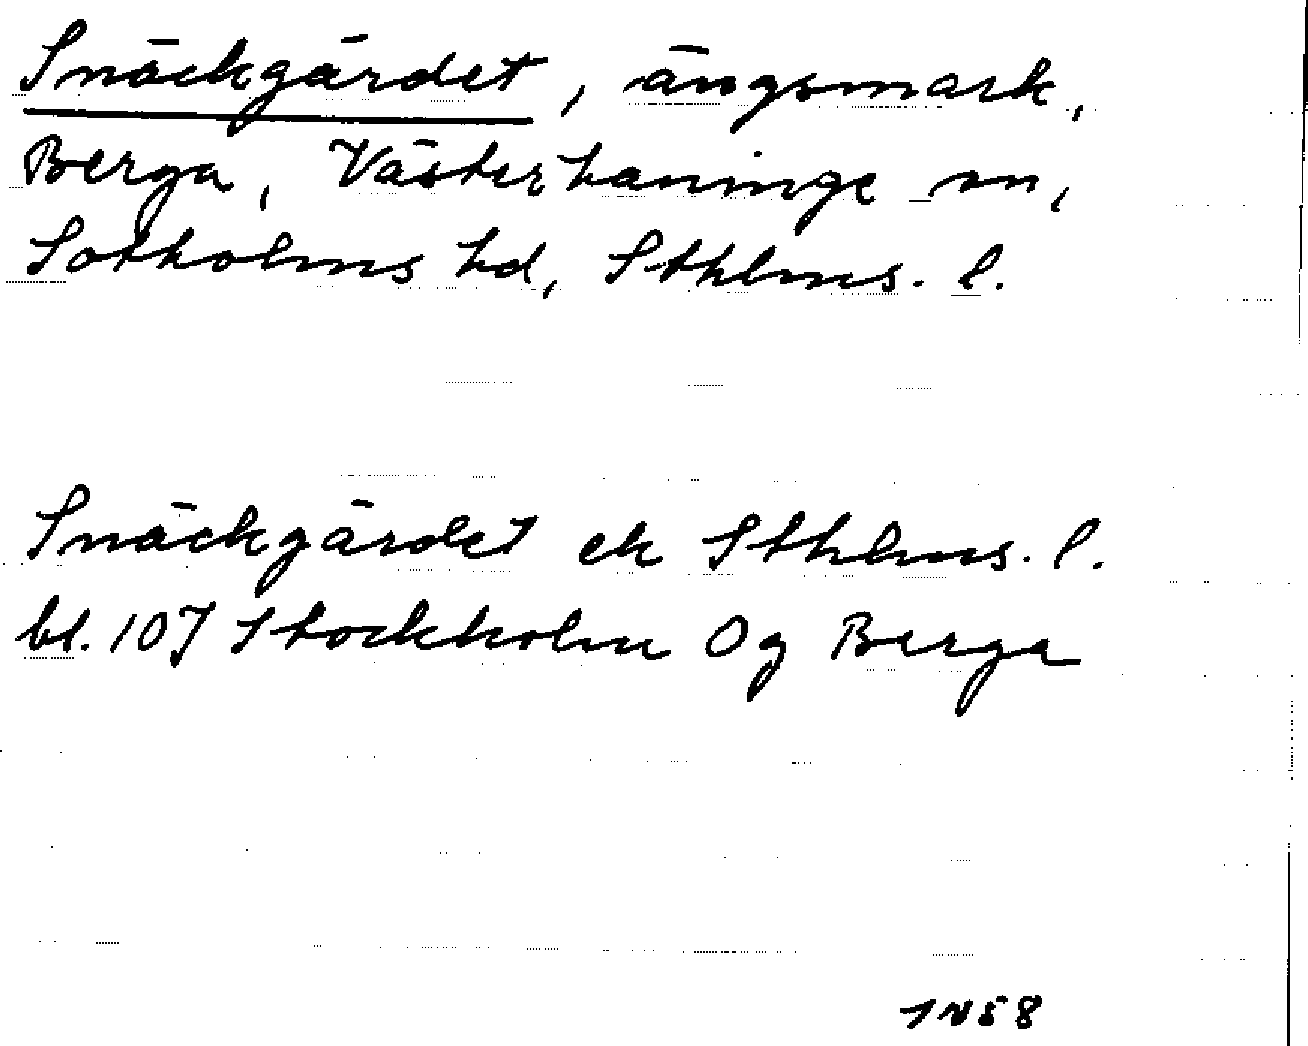 Snäckgärdet, ängsmark,
Berga, Västerhaninge sn,
Sotholms hd, Sthlms. l.
Snäckgärdet ek Sthlms. l.
bl. 107 Stockholm Og Berga